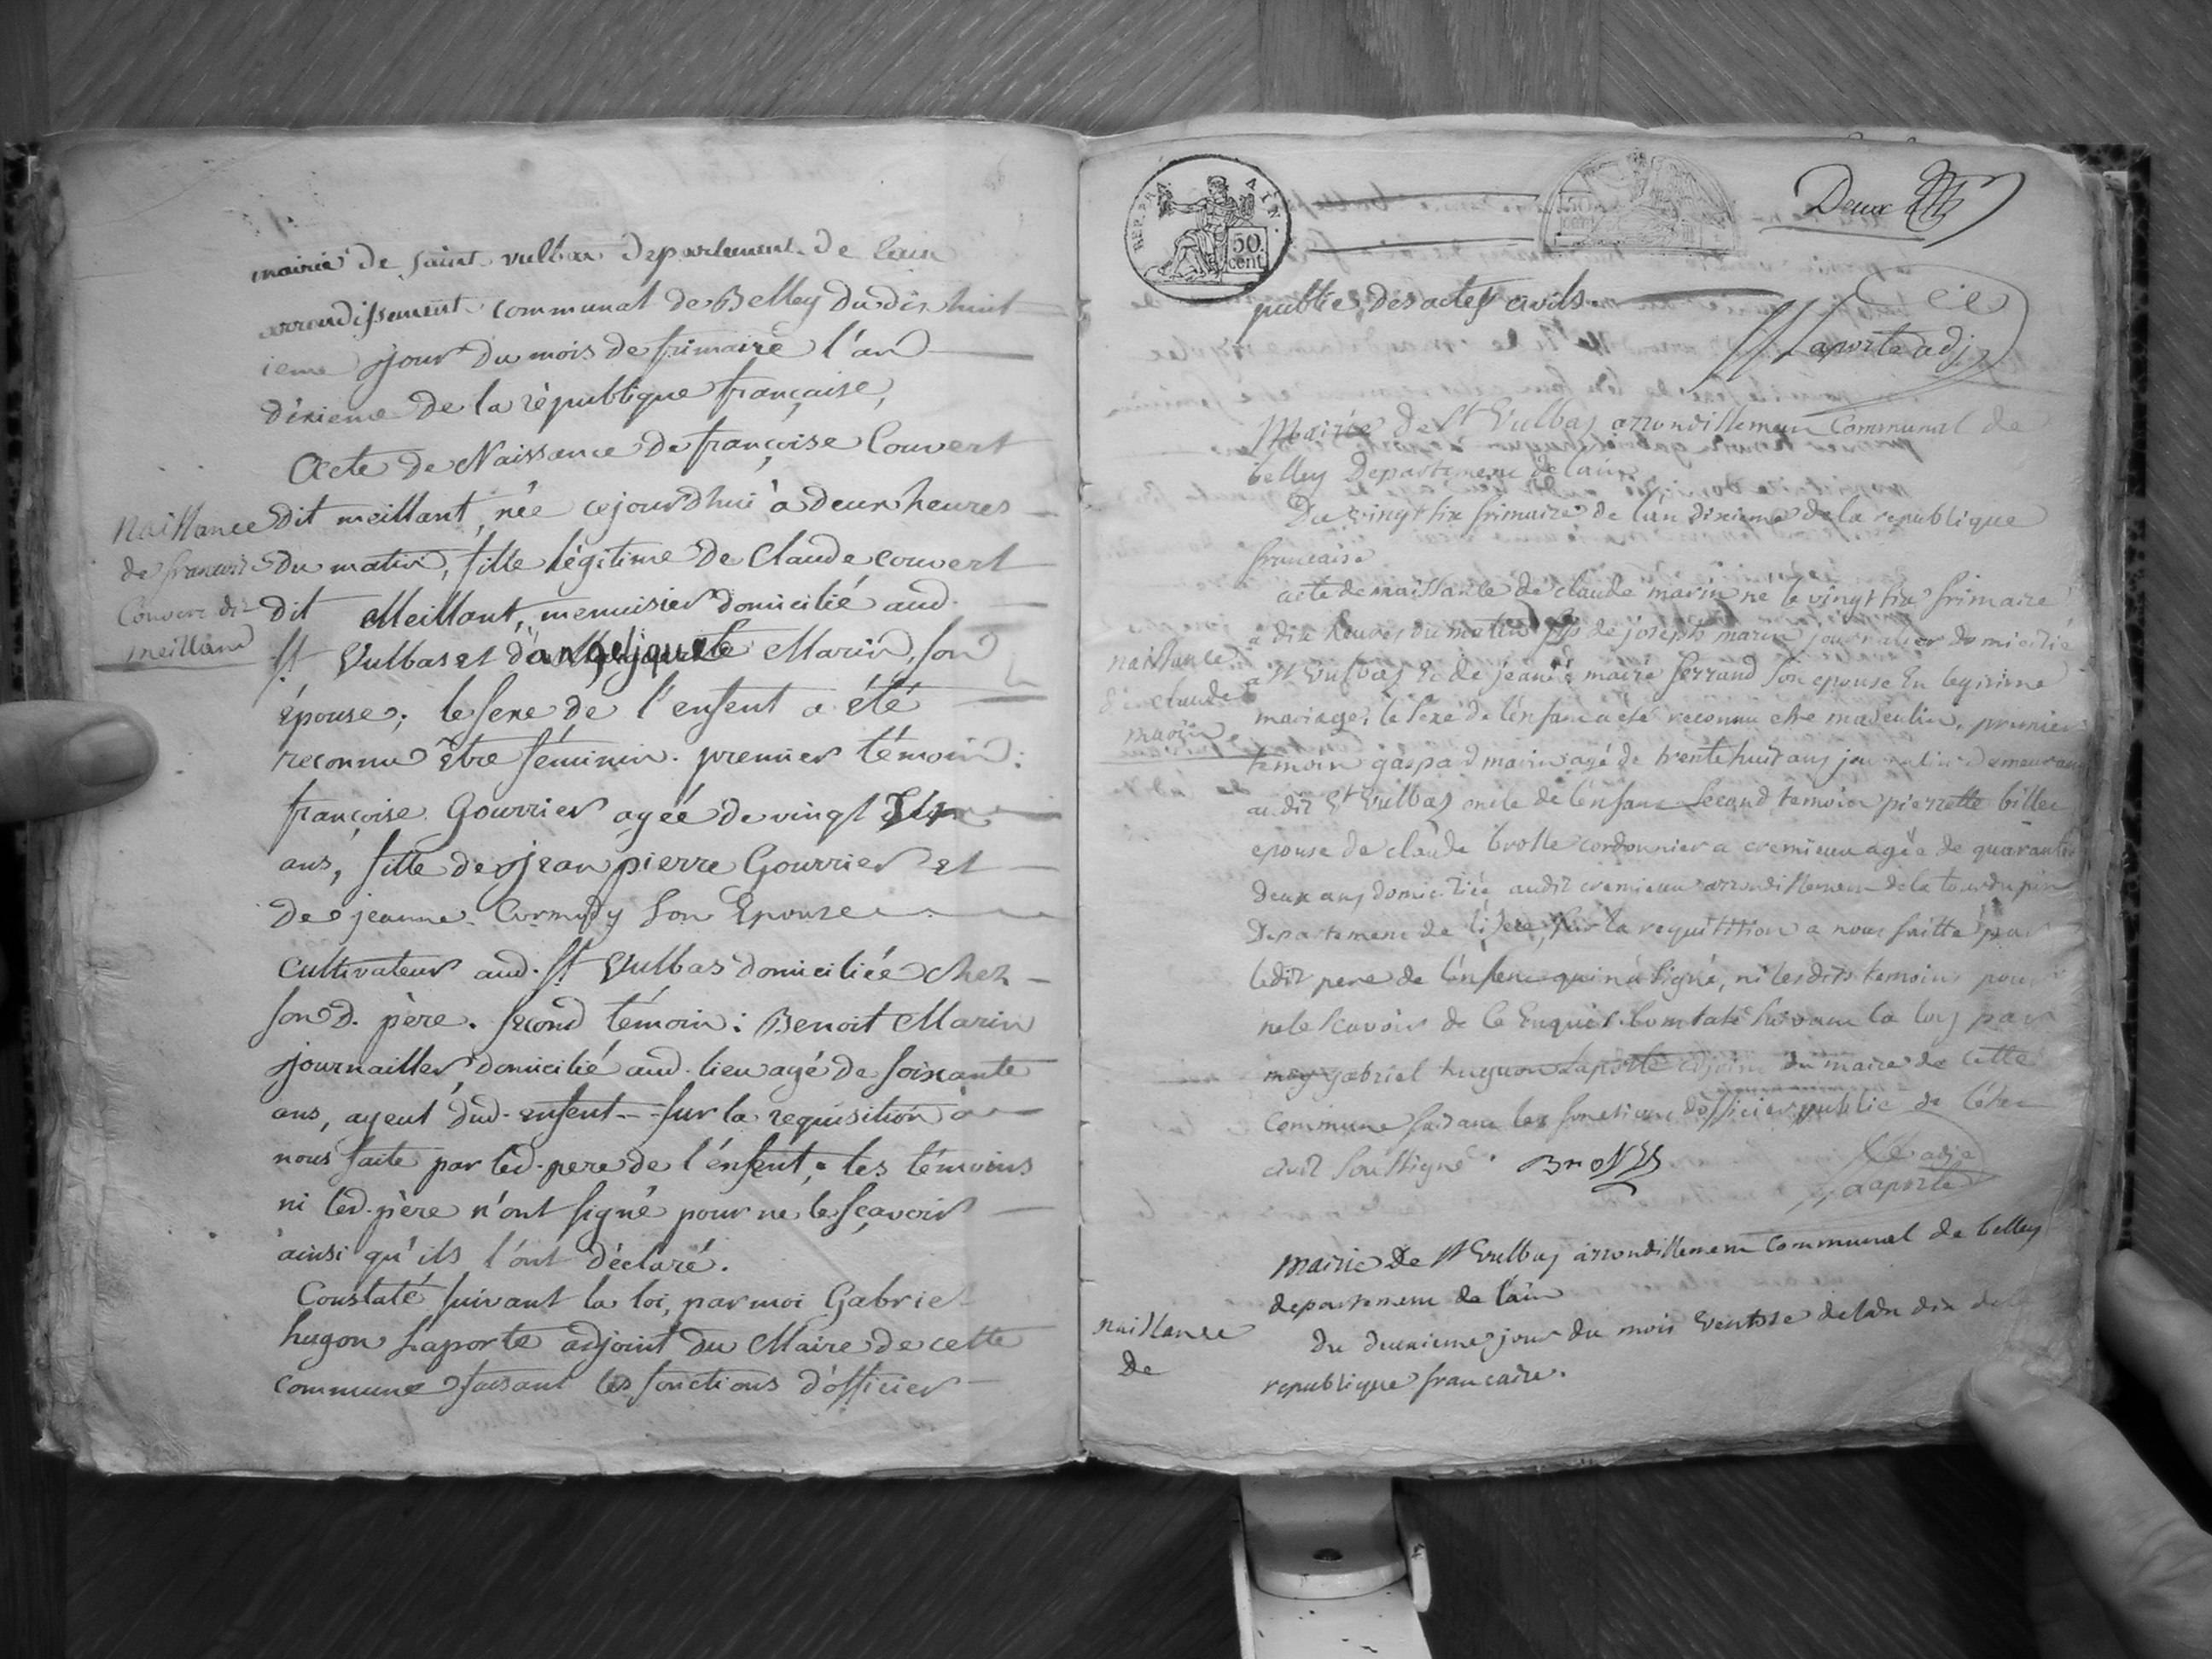 mairie de saint vulbas departement de lain
arrondissement communal de Belley du dix huit
ieme jour du mois de frimaire l'an
dixieme de la république française,
Acte de Naissance de françoise Couvert
Naissance
de francoise
Couvert dit
meilland
dit meillant, née cejourdhui à deux heures
du matin, fille légitime de Claude couvert
dit Meillant, menuisier domicilié aud.
St Vulbas et d'angelique Marin, son
épouse; le sexe de l'enfent a été
reconnu être féminin. premier témoin:
françoise Gourrier agée de vingt six
ans, fille de jean pierre Gourrier et
de jeanne Cormudy son Epouse
Cultivateur aud. St Vulbas domiciliée chez
son d. père. second témoin: Benoit Marin
journaillier domicilié aud. lieu agé de soixante
ans, ayeul dud. enfent -- sur la requisition à
nous faite par led. pere de l'énfent, les témoins
ni led. père n'ont signé pour ne le sçavoir
ainsi qu'ils l'ont déclaré.
Constaté suivant la loi, par moi Gabriel
hugon Laporte adjoint du Maire de cette
commune faisant les fonctions d'officier
REP. FRA
50
cent
50
cent
Deux
public, des actes civils.
Laporte adj
Mairie de St Vulbas arrondissement Communal de
belley Departement de lain
Du vingt six frimaire de lan dixieme de la republique
francaise
acte de naissance de claude marin né le vingt six frimaire
a dix heures du matin fils de joseph marin journalier domicilié
naissance
de claude
marin
a St Vulbas et de jeanne marie ferrand son epouse En legitime
mariage; le sexe de lenfant a été reconnu etre masculin. premier
temoin gaspad marin agé de trente huit ans journalier demeurant
audit St Vulbas oncle de lenfant second temoin pierrette billet
epouse de claude brosse cordonnier a cremieux agée de quarante
deux ans domiciliée audit cremieux arrondissement de la tour du pin
Departement de lisere, sur la requisition a nous faitte par
ledit pere de lenfent qui n'a signé, ni lesdits temoins pour
ne le scavoir de ce Enquis. Constaté suivant la loy par
moy gabriel huguon Laporte adjoint du maire de cette
Commune faisant les fonctions dofficier public de letat
civil soussigné.
adj
Laporte
Mairie De St Vulbas arrondissement Communal de belley
departement de lain
naissance
de
du deuxieme jour du mois Ventose de lan dix de la
republique francaise.